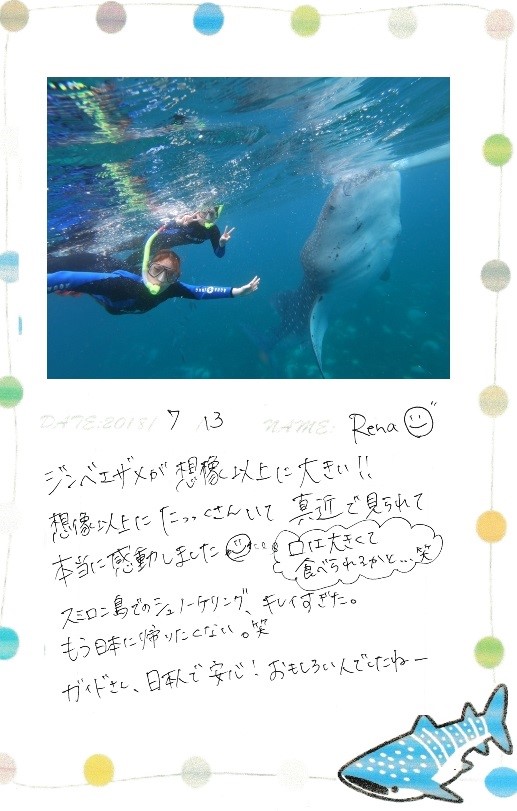 DATE:2018/ 7 /13 NAME: Rena
ジンベエザメが想像以上に大きい!!
想像以上にたっっくさんいて真近で見られて
本当に感動しました
口は大きくて
食べられるかと…笑
スミロン島でのシュノーケリング、キレイすぎた。
もう日本に帰りたくない。笑
ガイドさん、日本人で安心! おもしろい人でしたねー